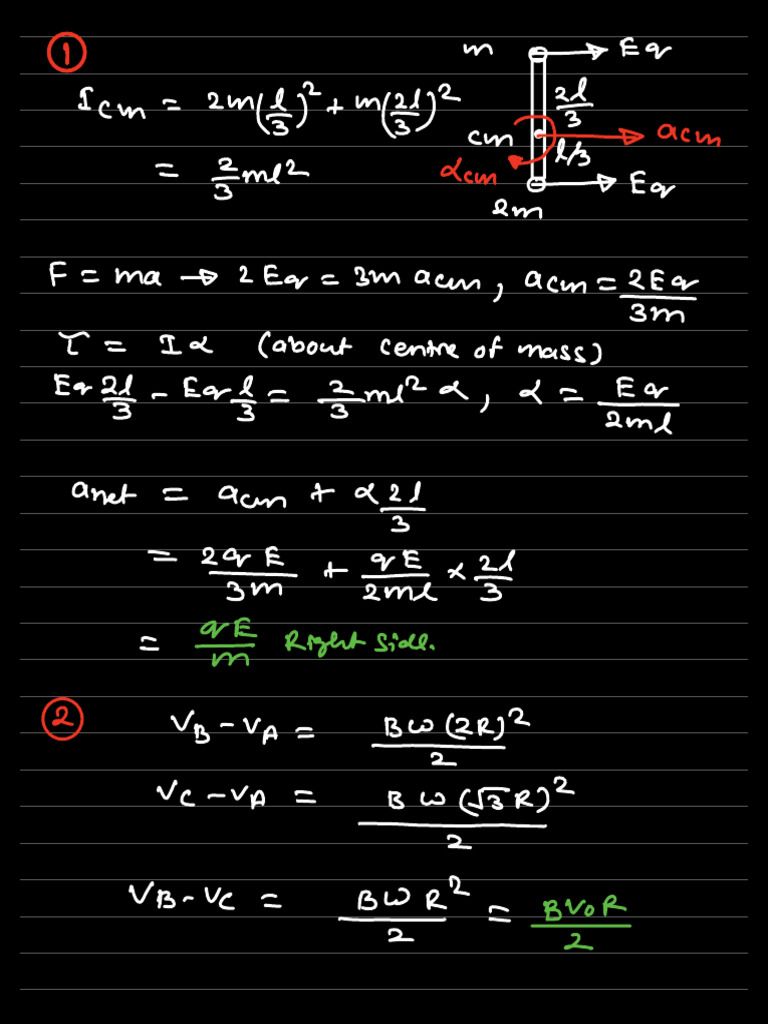 ①
m Eq
I_cm = 2m(l/3)² + m(2l/3)²
2l/3
cm a_cm
= 2/3 ml²
α_cm l/3
Eq
2m
F = ma → 2Eq = 3m a_cm, a_cm = 2Eq/3m
τ = Iα (about centre of mass)
Eq 2l/3 - Eq l/3 = 2/3 ml² α, α = Eq/2ml
a_net = a_cm + α 2l/3
= 2qE/3m + qE/2ml × 2l/3
= qE/m Right Side.
②
V_B - V_A = Bω(2R)²/2
V_C - V_A = Bω(√3R)²/2
V_B - V_C = BωR²/2 = BV₀R/2